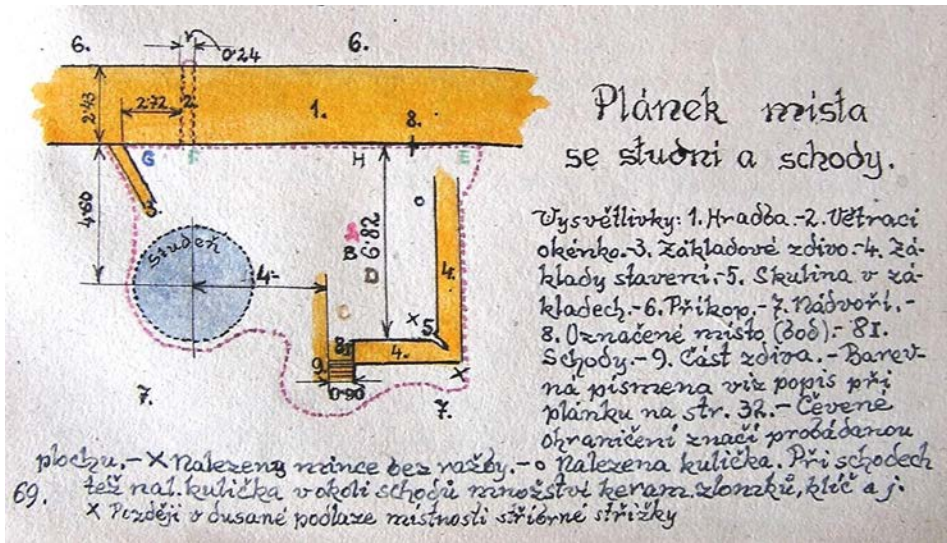 6.
0·24
6.
2·43
2·72
2.
1.
8.
G
F
H
E
3.
4·60
studeň
4·-
B
6·82
D
C
o
4.
×
5.
8I
4.
9.
0·90
×
7.
7.
Plánek místa
se studní a schody.
Vysvětlivky: 1. Hradba.-2. Větrací
okénko.-3. Základové zdivo.-4. Zá-
klady stavení.-5. Skulina v zá-
kladech.-6. Příkop.-7. Nádvoří.-
8. Označené místo (bod).- 8I.
Schody.-9. Část zdiva.- Barev-
ná písmena viz popis při
plánku na str. 32.- Čevené
ohraničení značí probádanou
plochu.- × Nalezeny mince bez ražby.- o Nalezena kulička. Při schodech
69. též nal. kulička v okolí schodů množství keram. zlomků, klíč a j.
× Později v dusané podlaze místnosti stříbrné střížky